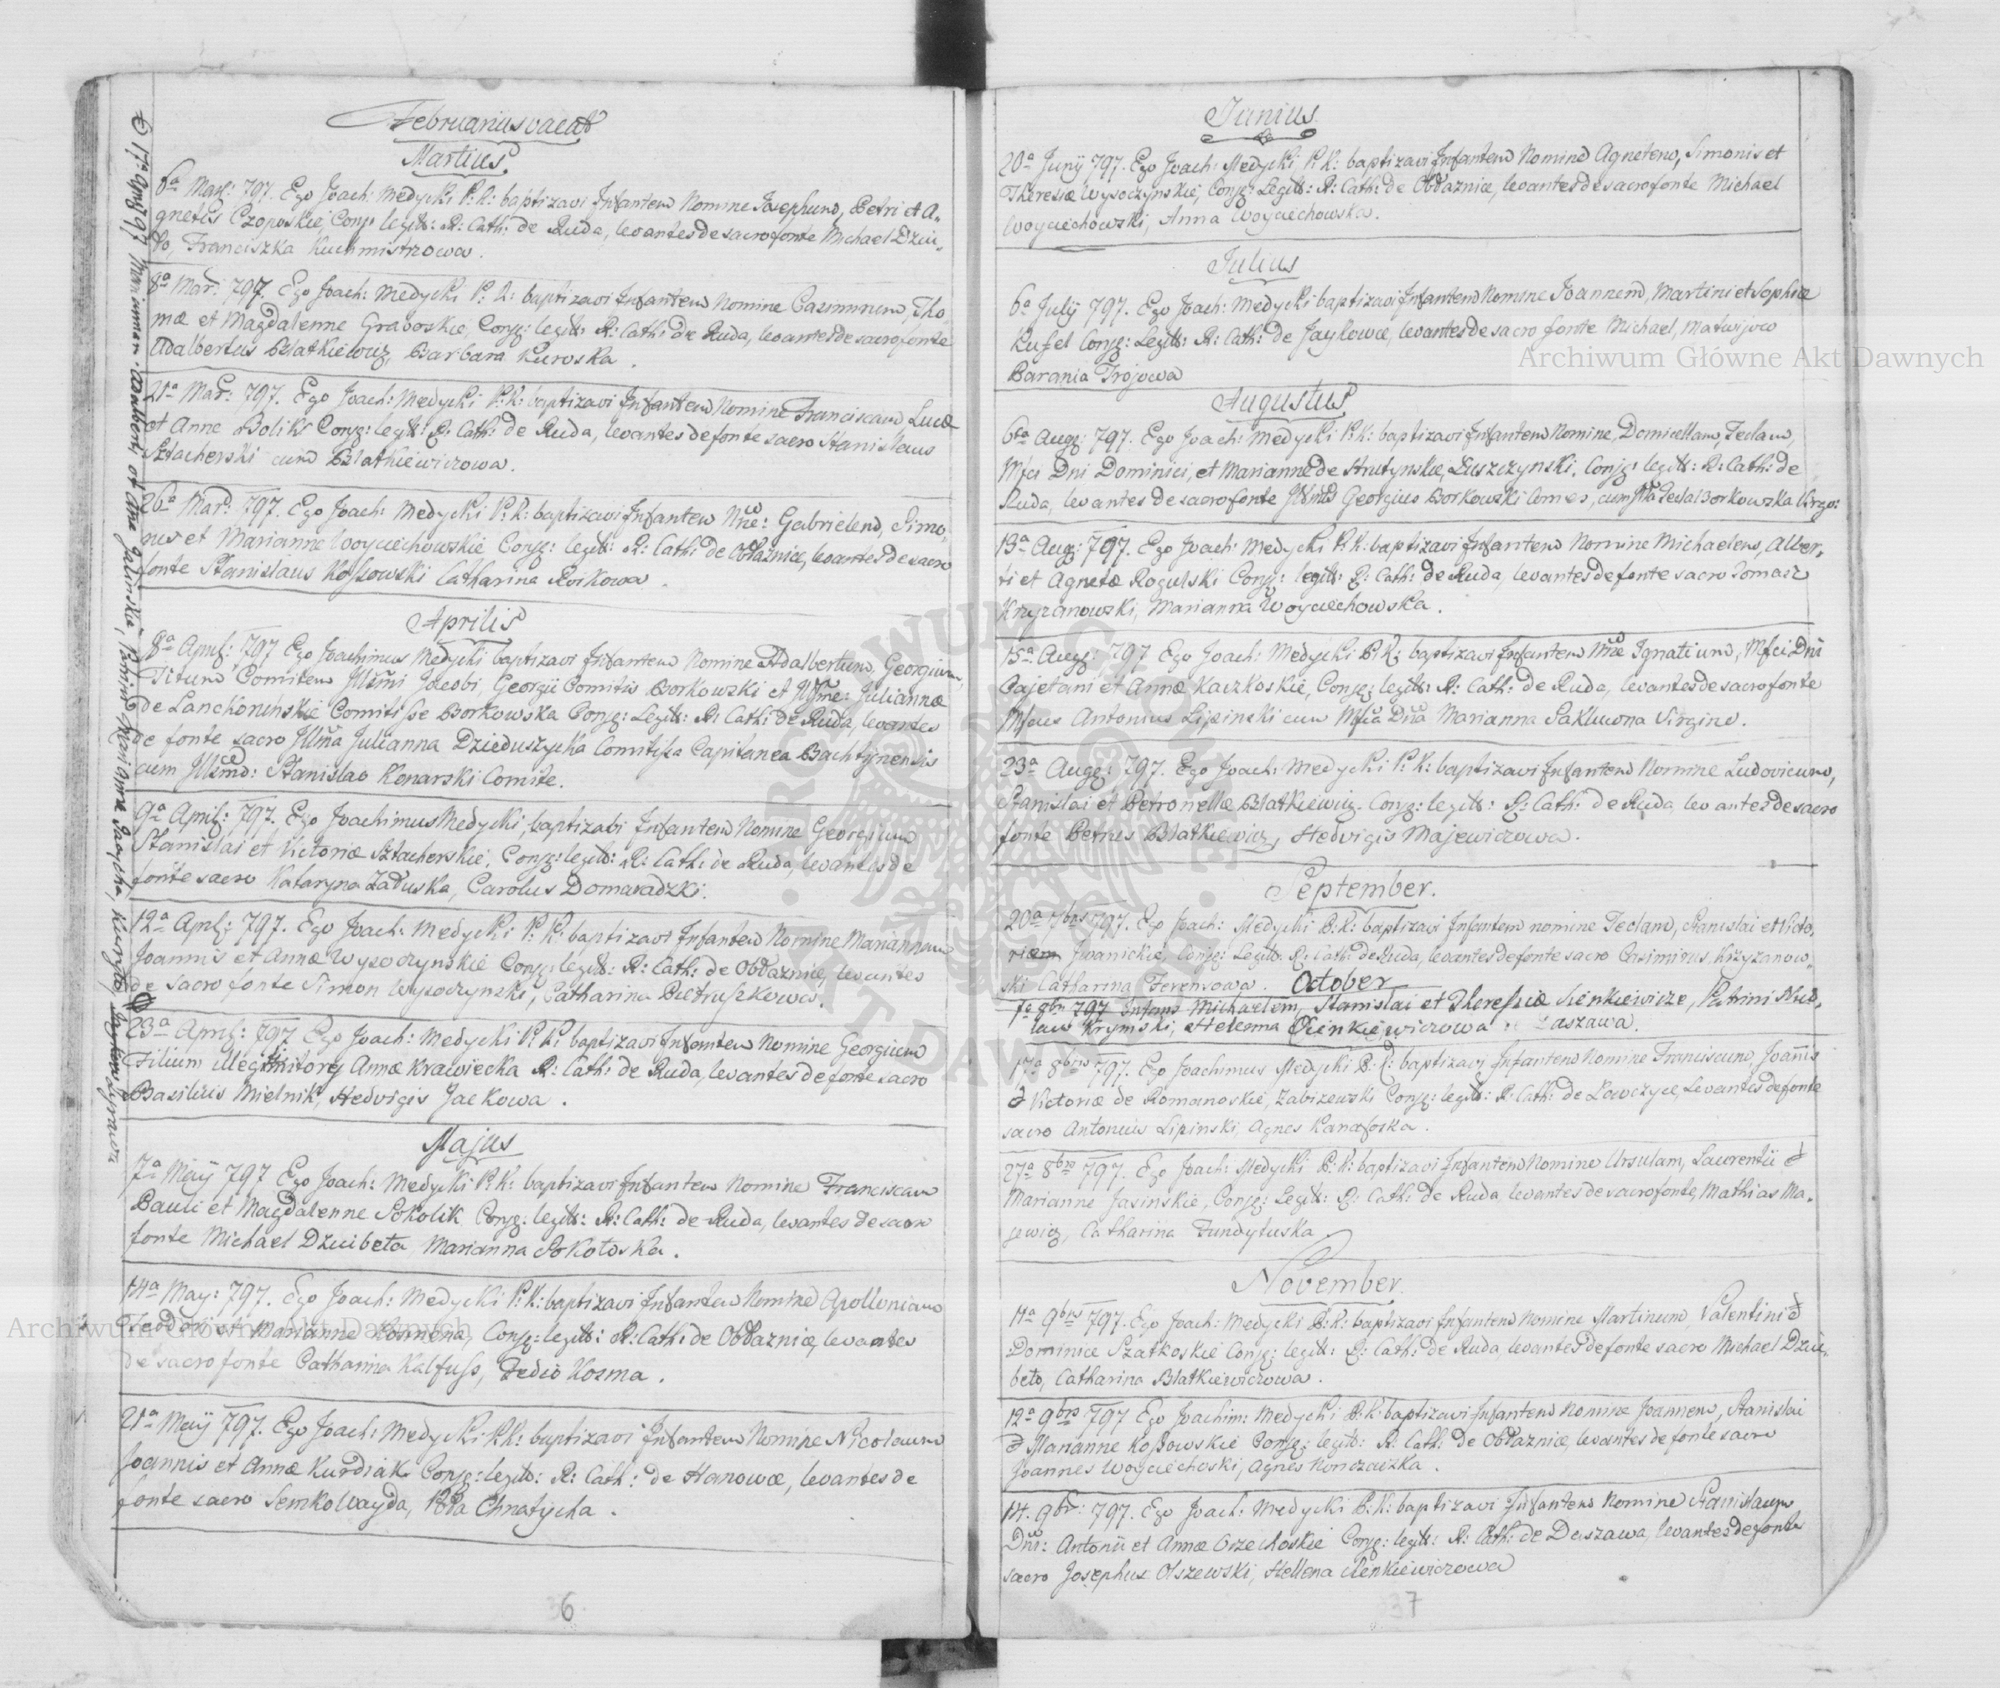 Februarius vacat
Martius
6a Mar: 797. Ego Joach: Medycki P: K: baptizavi Infantem Nomine Josephum, Petri et A-
gnetis Czoposkie, Conj: legit: R: Cath: de Ruda, levantes de sacro fonte Michael Dziu-
Franciszka Kuchmistrzowa.
8a Mar: 797. Ego Joach: Medycki P: K: baptizavi Infantem Nomine Casimirum, Tho
mæ et Magdalenne Graboskie, Conjg: legit: R: Cath: de Ruda, levantes de sacro fonte
Adalbertus Blatkiewicz, Barbara Kuroska.
21a Mar: 797. Ego Joach: Medycki P: K: baptizavi Infantem Nomine Franciscam, Lucæ
et Anne Boliks Conjg: legit: R: Cath: de Ruda, levantes de fonte sacro Stanislaus
Sztacherski cum Blatkiewiczowa.
26a Mar: 797. Ego Joach: Medycki P: K: baptizavi Infantem Nne: Gabrielem, Simo-
nis et Marianne Woyciechowskie Conjg: legit: R: Cath: de Obłaznice, levantes de sacro
fonte Stanislaus Kossowski Catharina Roikowa.
Aprilis
8a April: 797 Ego Joachimus Medycki baptizavi Infantem Nomine Adalbertum, Georgium,
Titum Comitem Illsmi Jacobi, Georgii Comitis Borkowski et Illsme: Juliannæ
de Lanckorinskie Comitisse Borkowska Conjg: Legit: R: Cath: de Ruda, levantes
de fonte sacro Illsma Julianna Dzieduszycka Comitissa Capitanea Bachtynensis
cum Illsmo: Stanislao Konarski Comite.
9a April: 797. Ego Joachimus Medycki, baptizavi Infantem Nomine Georgium
Stanislai et Victoriæ Sztacherskie, Conjg: legit: R: Cath: de Ruda, levantes de
fonte sacro Kataryna Załuska, Carolus Domaradzki.
12a April: 797. Ego Joach: Medycki P: K: baptizavi Infantem Nomine Mariannam
Joannis et Annæ Wysoczynskie Conjg: legit: R: Cath: de Obłaznice, levantes
de sacro fonte Simon Wysoczynski, Catharina Pietruszkowa.
23a April: 797. Ego Joach: Medycki P: K: baptizavi Infantem Nomine Georgium
Filium Illegitimi tori Annæ Krawiecka R: Cath: de Ruda, levantes de fonte sacro
Basilius Mielnik, Hedvigis Jackowa.
Majus
7a Maij 797 Ego Joach: Medycki P: K: baptizavi Infantem Nomine Franciscam
Pauli et Magdalenne Sokolik Conjg: legit: R: Cath: de Ruda, levantes de sacro
fonte Michael Dziubeta, Marianna Sokołoska.
14a May: 797. Ego Joach: Medycki P: K: baptizavi Infantem Nomine Apolloniam
Feodori et Marianne Kosmena, Conjg: legit: R: Cath: de Obłaznice, levantes
de sacro fonte Catharina Kalfuss, Fedio Kosma.
21a Maij 797. Ego Joach: Medycki P: K: baptizavi Infantem Nomine Nicolaum
Joannis et Annæ Kurdiak Conjg: legit: R: Cath: de Hanowce, levantes de
fonte sacro Semko Wayda, Chnatycha.
17a April 797 Mariannam Adalberti et Annæ Jasinskie, Patrini Marianna
36
Junius.
20a Junij 797. Ego Joach: Medycki P: K: baptizavi Infantem Nomine Agnetem, Simonis et
Theresiæ Wysoczynskie, Conjg: Legit: R: Cath: de Obłaznice, levantes de sacro fonte Michael
Woyciechowski, Anna Woyciechowska.
Julius
6a Julij 797. Ego Joach: Medycki baptizavi Infantem Nomine Joannem, Martini et Sophiæ
Kufel Conjg: Legit: R: Cath: de Jaykowce, levantes de sacro fonte Michael, Matwijow
Barania Trojowa
Augustus
6ta Augg: 797. Ego Joach: Medycki P: K: baptizavi Infantem Nomine, Domicellam, Teclam,
Mfci Dni Dominici, et Marianne de Strutynskie, Łuszczynski, Conjg: legit: R: Cath: de
Ruda, levantes de sacro fonte Illsmus Georgius Borkowski Comes, cum Illsma Tecla Borkowska Virgo:
13a Aug: 797. Ego Joach: Medycki P: K: baptizavi Infantem Nomine Michaelem, Alber-
ti et Agnetæ Rogulski Conjg: legit: R: Cath: de Ruda, levantes de fonte sacro Tomasz
Krzyzanowski, Marianna Woyciechowska.
15a Augg: 797 Ego Joach: Medycki P: K: baptizavi Infantem Nne Ignatium, Mfci Dni
Cajetani et Annæ Kaczkoskie, Conjg: legit: R: Cath: de Ruda, levantes de sacro fonte
Mfcus Antonius Lipinski cum Mfca Dna Marianna Sakluwona Virgine.
23a Augg: 797. Ego Joach: Medycki P: K: baptizavi Infantem Nomine Ludovicum,
Stanislai et Petronellæ Blatkiewicz. Conjg: legit: R: Cath: de Ruda, levantes de sacro
fonte Petrus Blatkiewicz, Hedvigis Majewiczowa.
September.
20a 7bris 797. Ego Joach: Medycki P: K: baptizavi Infantem nomine Teclam, Stanislai et Victo-
riæ Iwanickie, Conjg: Legit: R: Cath: de Ruda, levantes de fonte sacro Casimirus Krzyzanow-
ski Catharina Ferensowa.
October
1a 8br 797 Infans Michaelem, Stanislai et Theressiæ Sienkiewicze, Patrini
Krymski, Helenna Sienkiewiczowa
17a 8bris 797. Ego Joachimus Medycki P: K: baptizavi Infantem Nomine Franciscum, Joannis
et Victoriæ de Romanoskie, Zabizewski Conjg: legit: R: Cath: de Lawczyce, levantes de fonte
sacro Antonius Lipinski, Agnes Kanafoska.
27a 8bris 797. Ego Joach: Medycki P: K: baptizavi Infantem Nomine Ursulam, Laurentii et
Marianne Jasinskie, Conjg: Legit: R: Cath: de Ruda, levantes de sacro fonte, Mathias Ma-
jewicz, Catharina Fundytuska
November.
11a 9bris 797. Ego Joach: Medycki P: K: baptizavi Infantem Nomine Martinum, Valentini et
Dominice Szatkoskie Conjg: legit: R: Cath: de Ruda, levantes de fonte sacro Michael Dziu-
beto, Catharina Blatkiewiczowa.
12a 9bris 797 Ego Joachim: Medycki P: K: baptizavi Infantem Nomine Joannem, Stanislai
et Marianne Kossowskie Conjg: legit: R: Cath: de Obłaznice, levantes de fonte sacro
Joannes Woyciechoski, Agnes Konczaczka.
14. 9br: 797. Ego Joach: Medycki P: K: baptizavi Infantem Nomine Stanislaum,
Dni: Antonii et Annæ Orzechoskie Conjg: legit: R: Cath: de Daszawa, levantes de fonte
sacro Josephus Olszewski, Hellena Sienkiewiczowa
37
Archiwum Główne Akt Dawnych
Archiwum Główne Akt Dawnych
ARCHIWUM GŁÓWNE AKT DAWNYCH